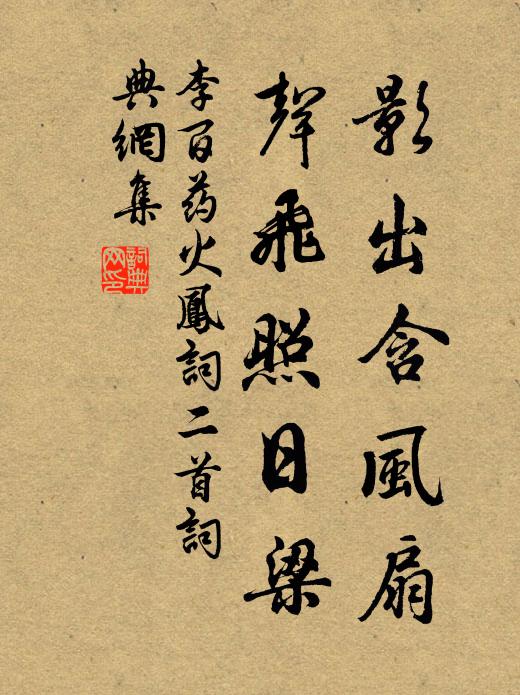 影出含風扇
聲飛照日梁
李百药火鳳詞二首詞
典網集
詞典
网印